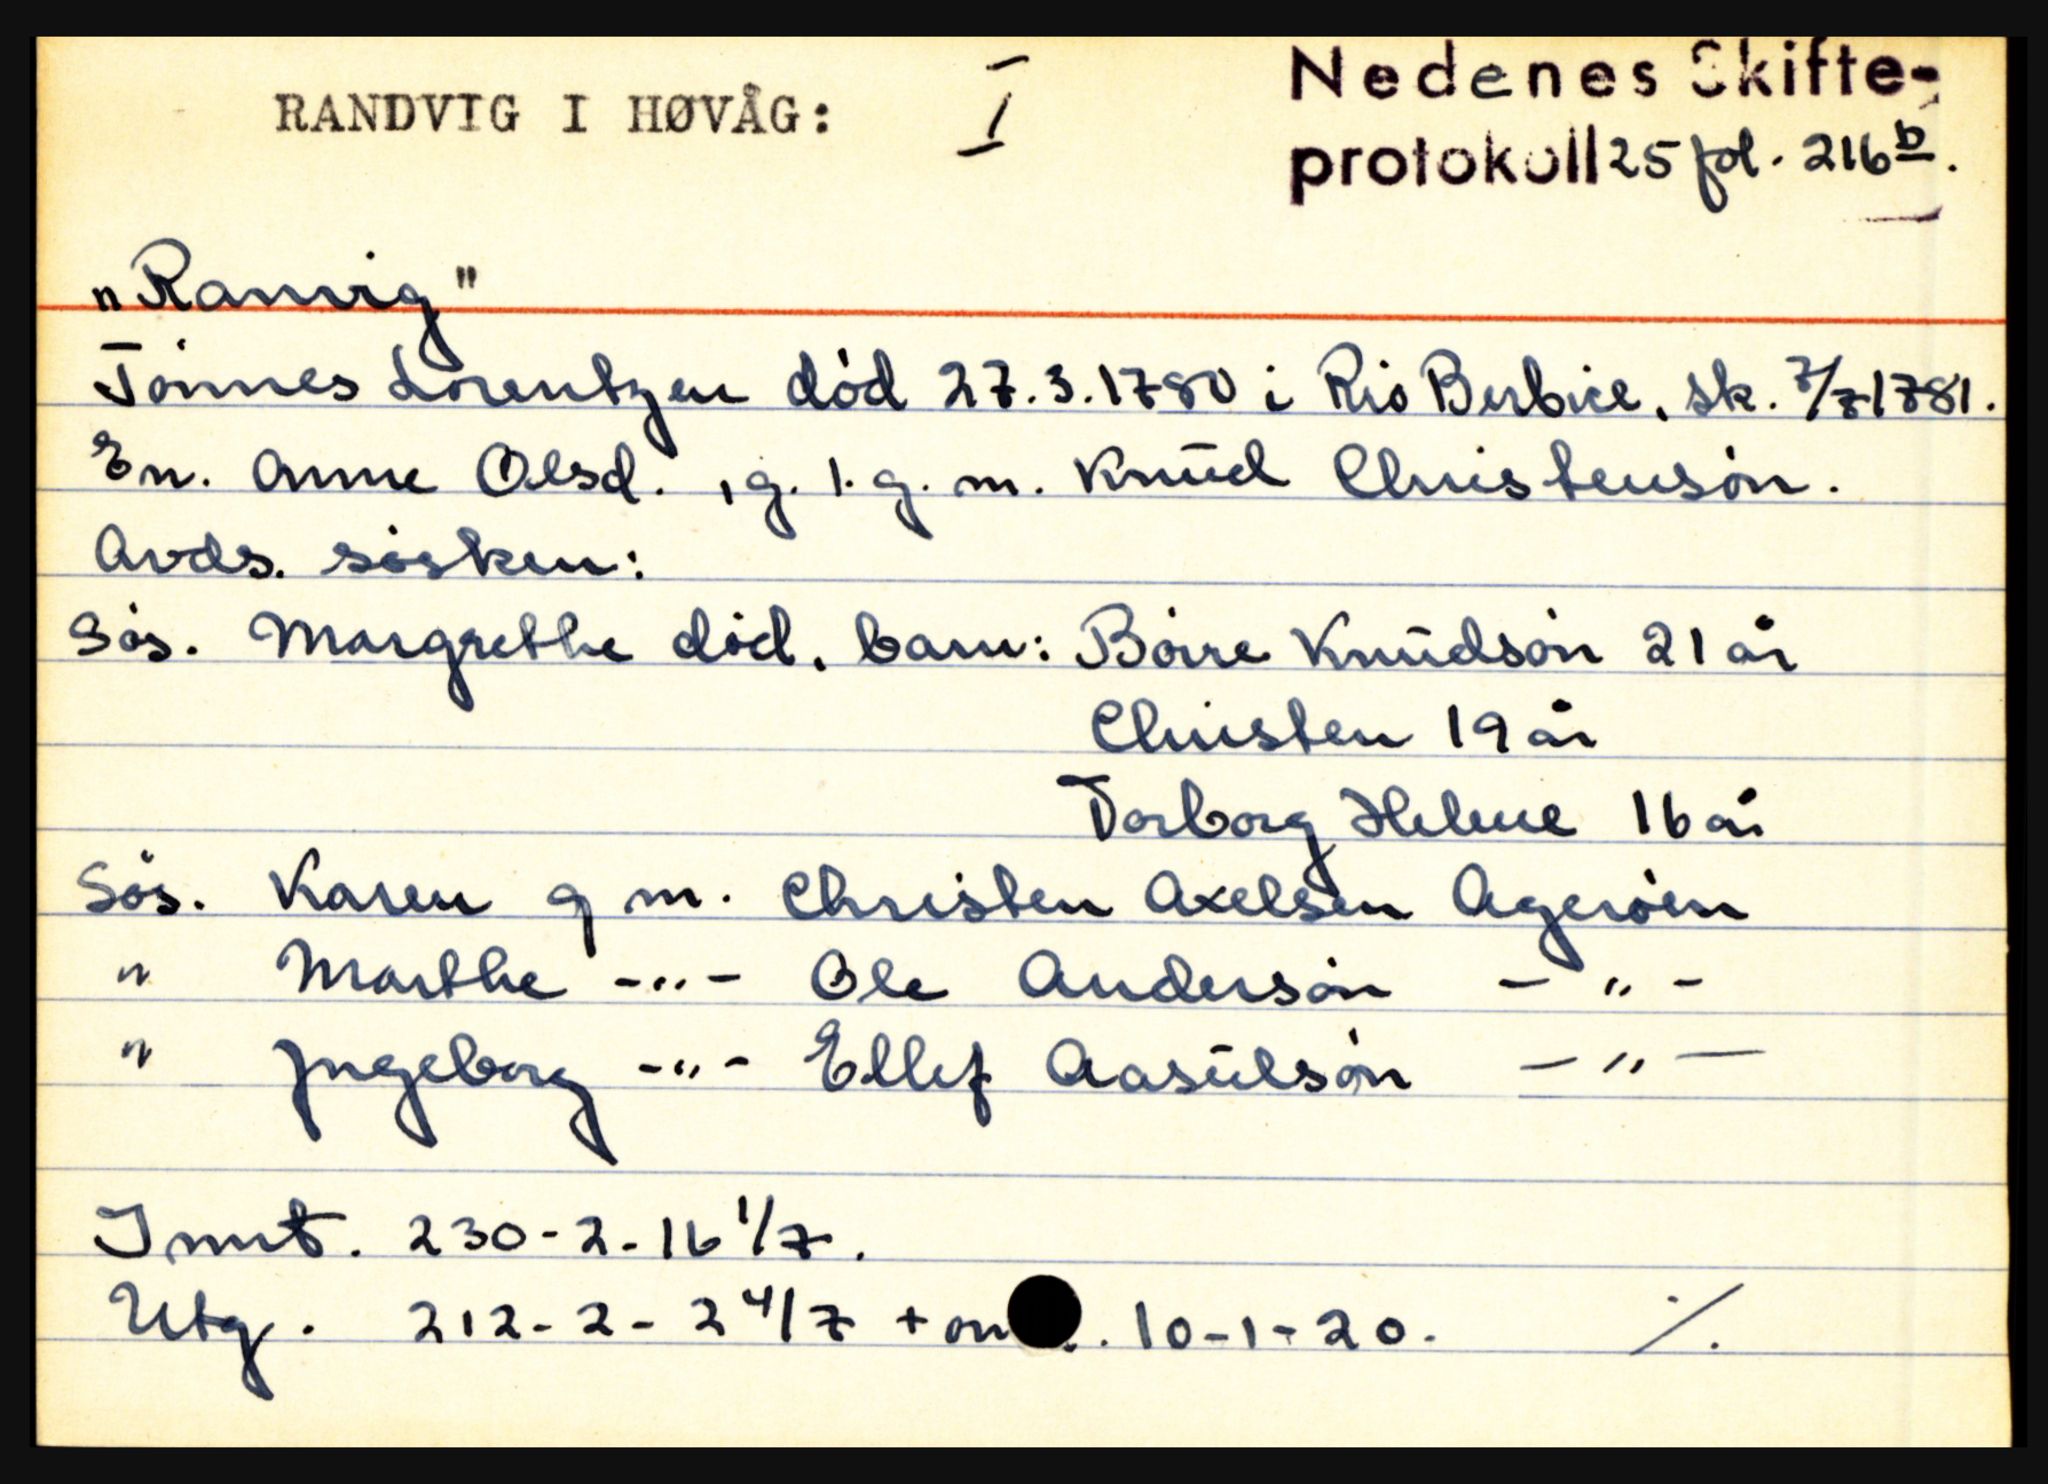 RANDVIG I HØVÅG: I
Nedenes Skifte-
protokoll 25 fol. 216 b.
"Ranvig"
Tönnes Lorentzen död 27.3.1780 i Rio Berbice, sk. 7/7 1781.
En. Anne Olsd., g. 1. g. m. Knüd Christensön.
Avds. sösken:
Sös. Margrethe död, barn: Börre Knüdsön 21 år
Christen 19 år
Torborg Helene 16 år
Sös. Karen g m. Christen Axelsen Ageröen
" Marthe -"- Ole Andersön - " -
" Ingeborg -"- Ellef Aasülsön - " -
Innt. 230-2-16 1/7.
Utg. 212-2-2 4/7 + 10-1-20. ./.